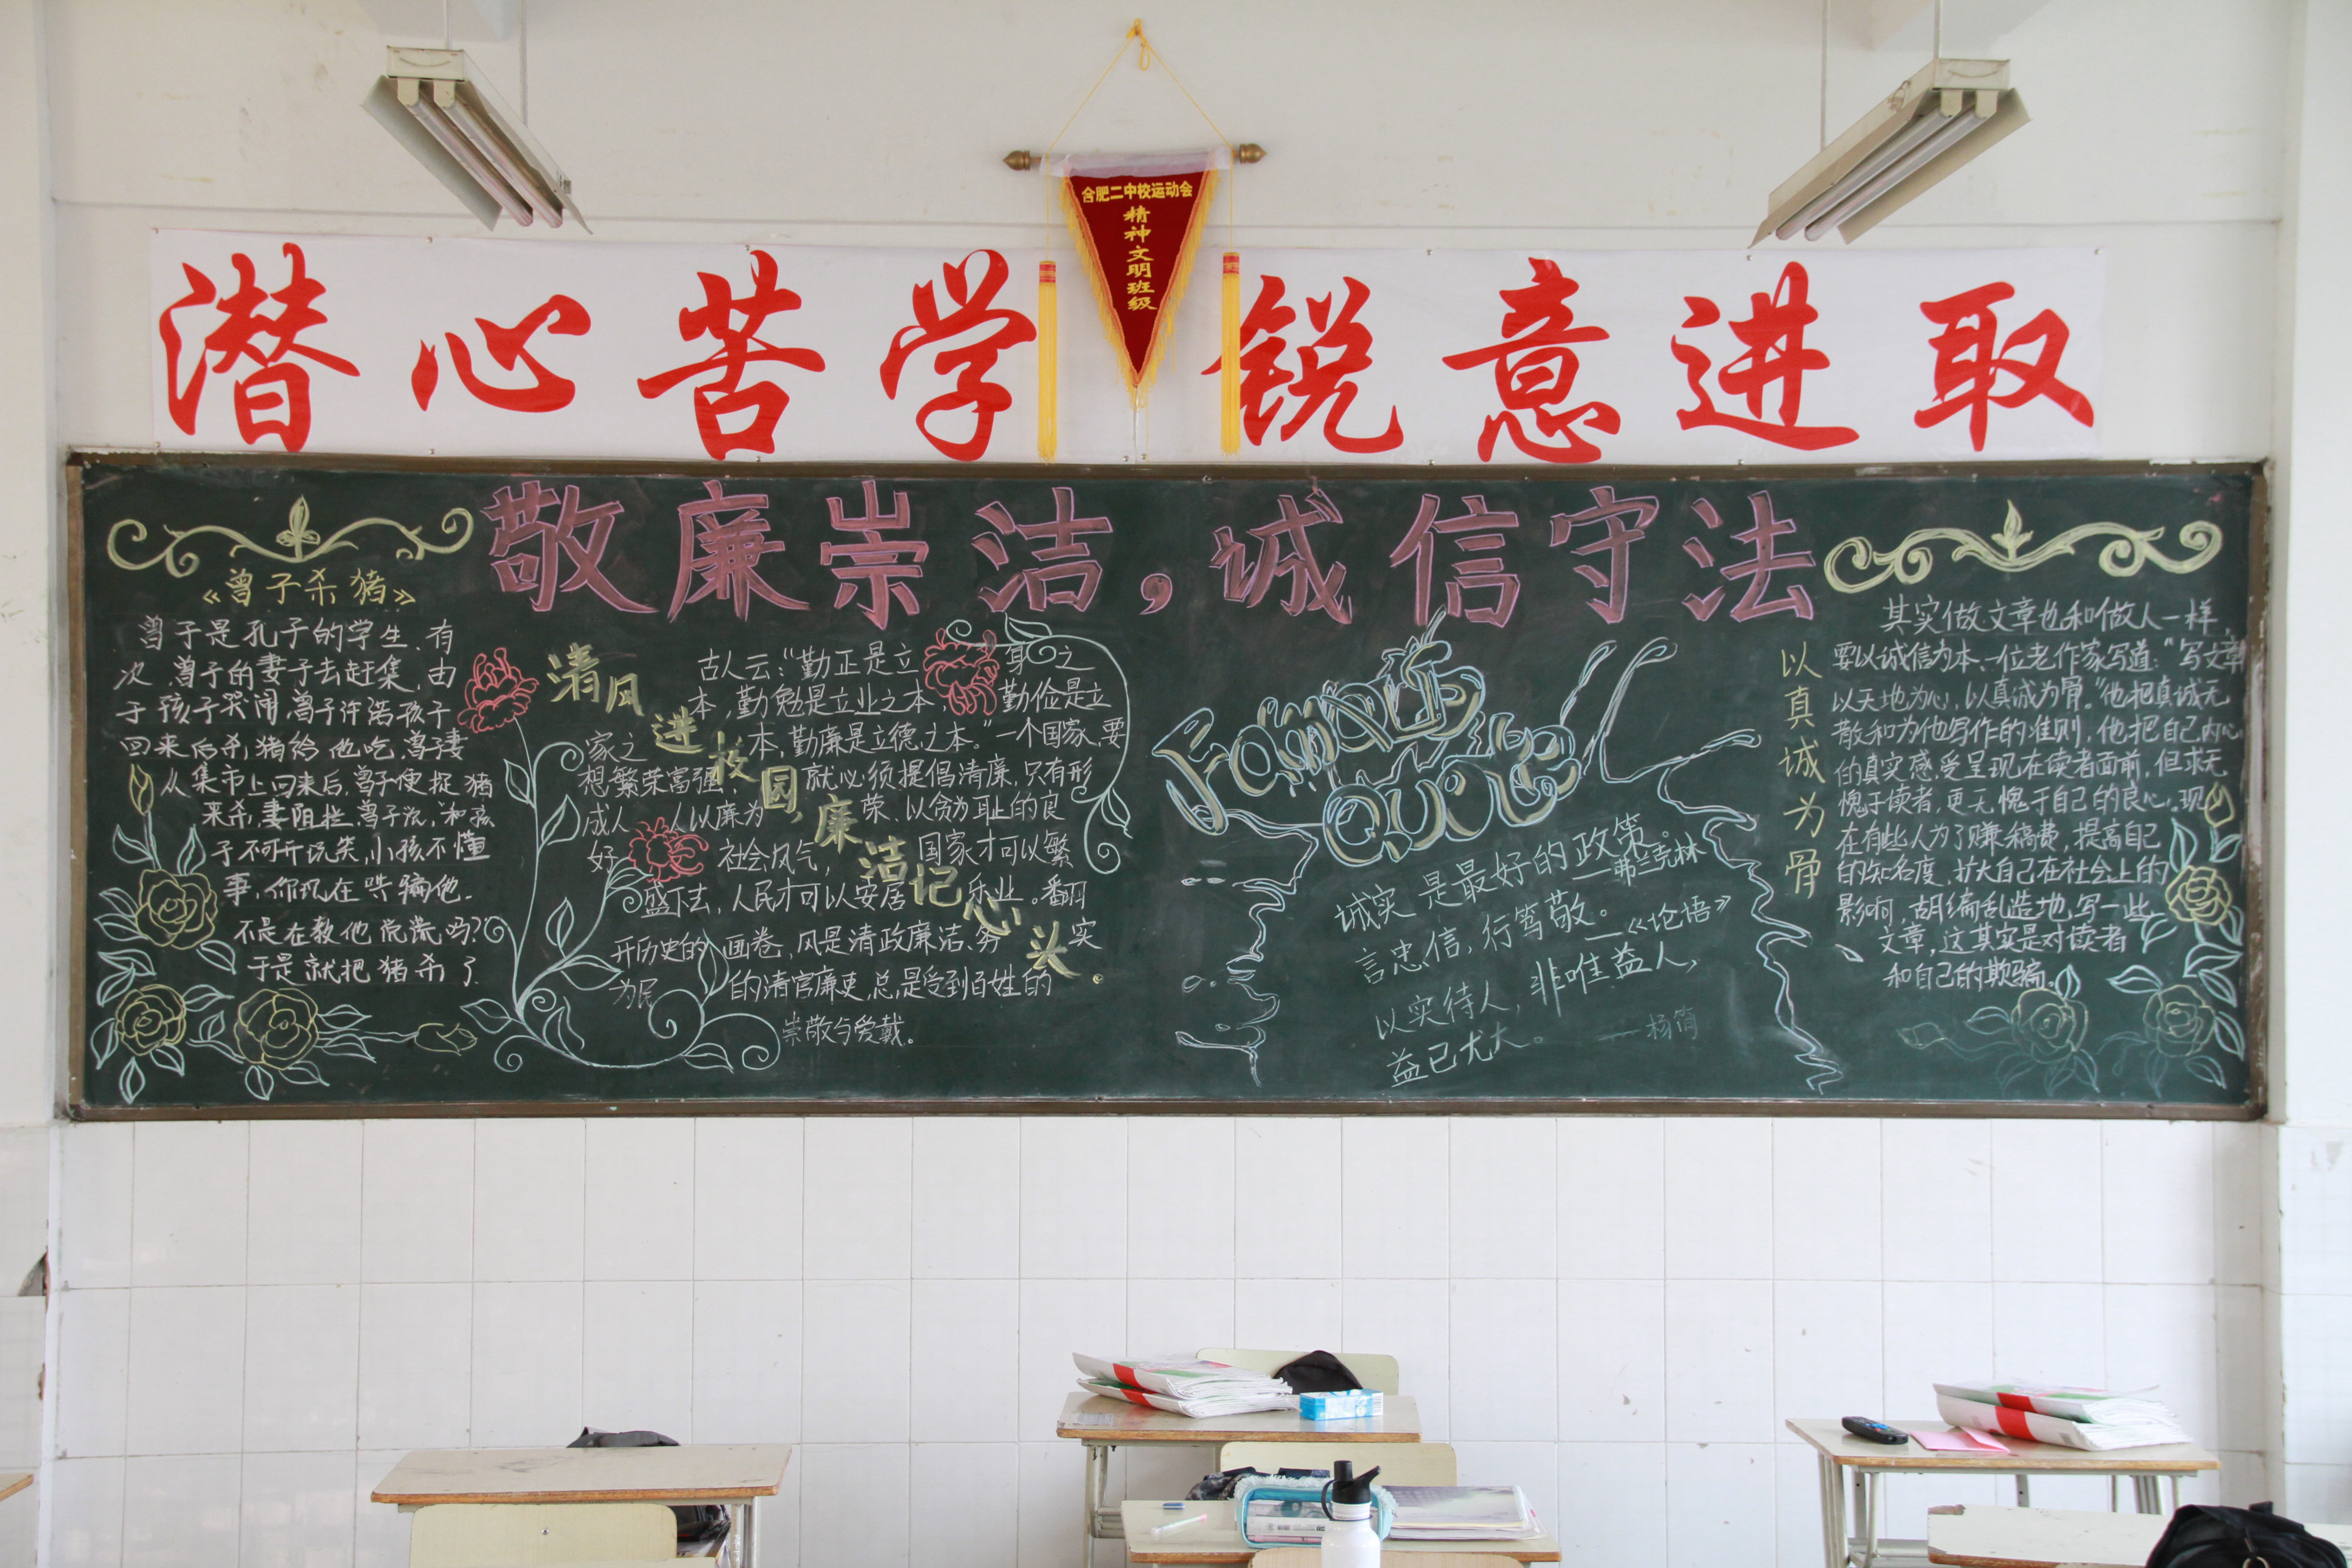 合肥二中校运动会
精神文明班级
潜心苦学 锐意进取
敬廉崇洁，诚信守法
《曾子杀猪》
曾子是孔子的学生，有
次，曾子的妻子去赶集，由
于孩子哭闹，曾子许诺孩子
回来后杀猪给他吃，曾子妻
从集市上回来后，曾子便捉猪
来杀，妻阻拦，曾子说，和孩
子不可开玩笑，小孩不懂
事，你现在哄骗他，
不是在教他说谎吗？
于是就把猪杀了
清风进校园，廉洁记心头。
古人云：“勤正是立身之
本，勤勉是立业之本，勤俭是立
家之本，勤廉是立德之本。”一个国家，要
想繁荣富强，就必须提倡清廉，只有形
成人人以廉为荣、以贪为耻的良
好社会风气，国家才可以繁
盛下去，人民才可以安居乐业。翻
开历史的画卷，风是清政廉洁、务实
为民的清官廉吏，总是受到百姓的
崇敬与爱戴。
Famous
Quote
诚实是最好的政策。
——弗兰克林
言忠信，行笃敬。——《论语》
以实待人，非唯益人，
益己尤大。——杨简
以真诚为骨
其实做文章也和做人一样，
要以诚信为本，一位老作家写道：“写文章
以天地为心，以真诚为骨。”他把真诚无
散和为他写作的准则，他把自己内心
的真实感受呈现在读者面前，但求无
愧于读者，更无愧于自己的良心，现
在有些人为了赚稿费，提高自己
的知名度，扩大自己在社会上的
影响，胡编乱造地写一些
文章，这其实是对读者
和自己的欺骗。